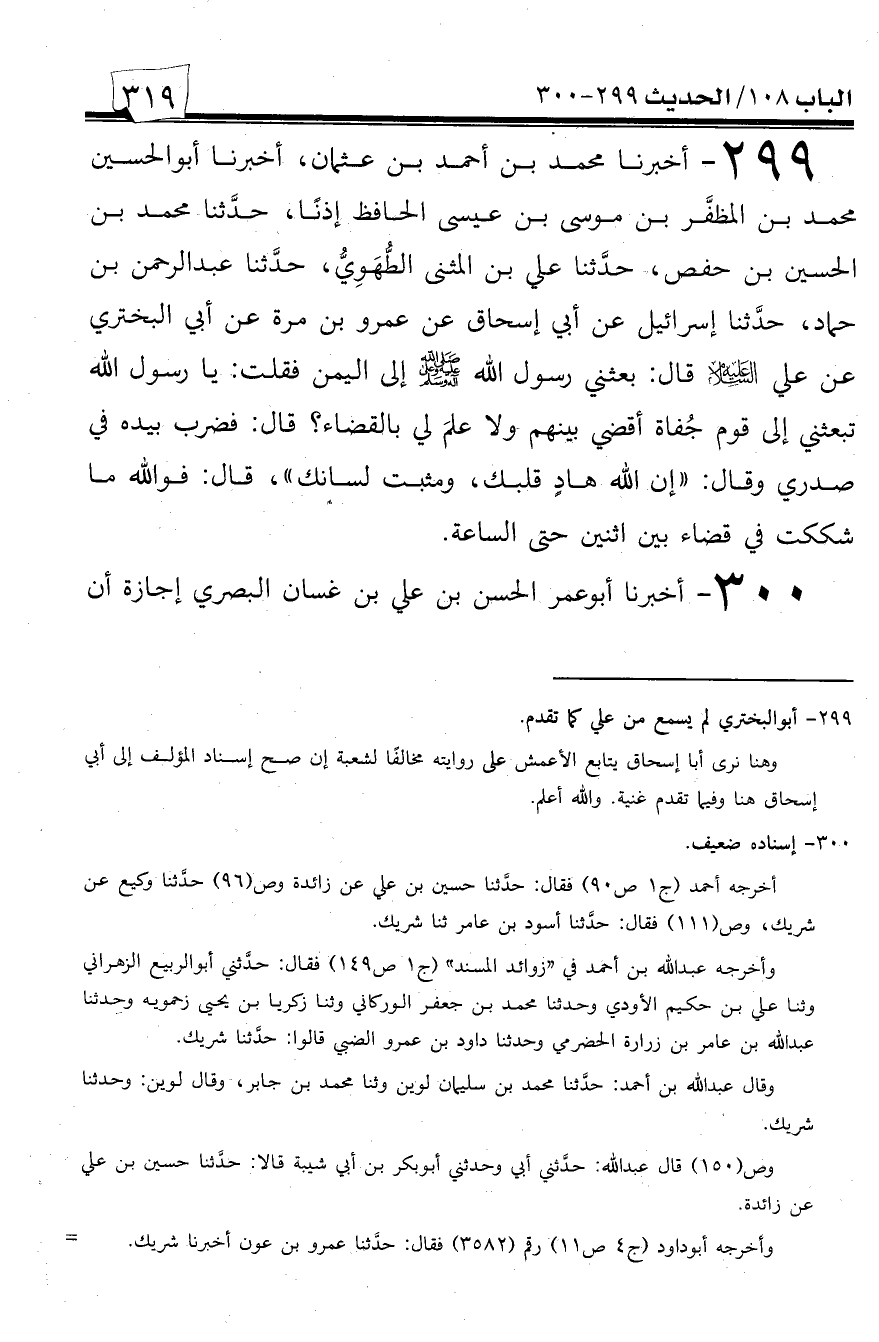 الباب ١٠٨/الحديث ٢٩٩-٣٠٠
٣١٩
٢٩٩- أخبرنا محمد بن أحمد بن عثمان، أخبرنا أبوالحسين
محمد بن المظفَّر بن موسى بن عيسى الحافظ إذنًا، حدَّثنا محمد بن
الحسين بن حفص، حدَّثنا علي بن المثنى الطُّهَوِيُّ، حدَّثنا عبدالرحمن بن
حماد، حدَّثنا إسرائيل عن أبي إسحاق عن عمرو بن مرة عن أبي البختري
عن علي عليه السلام قال: بعثني رسول الله ﷺ إلى اليمن فقلت: يا رسول الله
تبعثني إلى قوم جُفاة أقضي بينهم ولا علمَ لي بالقضاء؟ قال: فضرب بيده في
صدري وقال: «إن الله هادٍ قلبك، ومثبت لسانك»، قال: فوالله ما
شككت في قضاء بين اثنين حتى الساعة.
٣٠٠- أخبرنا أبوعمر الحسن بن علي بن غسان البصري إجازة أن
٢٩٩- أبوالبختري لم يسمع من علي كما تقدم.
وهنا نرى أبا إسحاق يتابع الأعمش على روايته مخالفًا لشعبة إن صح إسناد المؤلف إلى أبي
إسحاق هنا وفيما تقدم غنية. والله أعلم.
٣٠٠- إسناده ضعيف.
أخرجه أحمد (ج١ ص٩٠) فقال: حدَّثنا حسين بن علي عن زائدة وص(٩٦) حدَّثنا وكيع عن
شريك، وص(١١١) فقال: حدَّثنا أسود بن عامر ثنا شريك.
وأخرجه عبدالله بن أحمد في «زوائد المسند» (ج١ ص١٤٩) فقال: حدَّثني أبوالربيع الزهراني
وثنا علي بن حكيم الأودي وحدثنا محمد بن جعفر الوركاني وثنا زكريا بن يحيى زحمويه وحدثنا
عبدالله بن عامر بن زرارة الحضرمي وحدثنا داود بن عمرو الضبي قالوا: حدَّثنا شريك.
وقال عبدالله بن أحمد: حدَّثنا محمد بن سليمان لوين وثنا محمد بن جابر، وقال لوين: وحدثنا
شريك.
وص(١٥٠) قال عبدالله: حدَّثني أبي وحدثني أبوبكر بن أبي شيبة قالا: حدَّثنا حسين بن علي
عن زائدة.
وأخرجه أبوداود (ج٤ ص١١) رقم (٣٥٨٢) فقال: حدَّثنا عمرو بن عون أخبرنا شريك. =